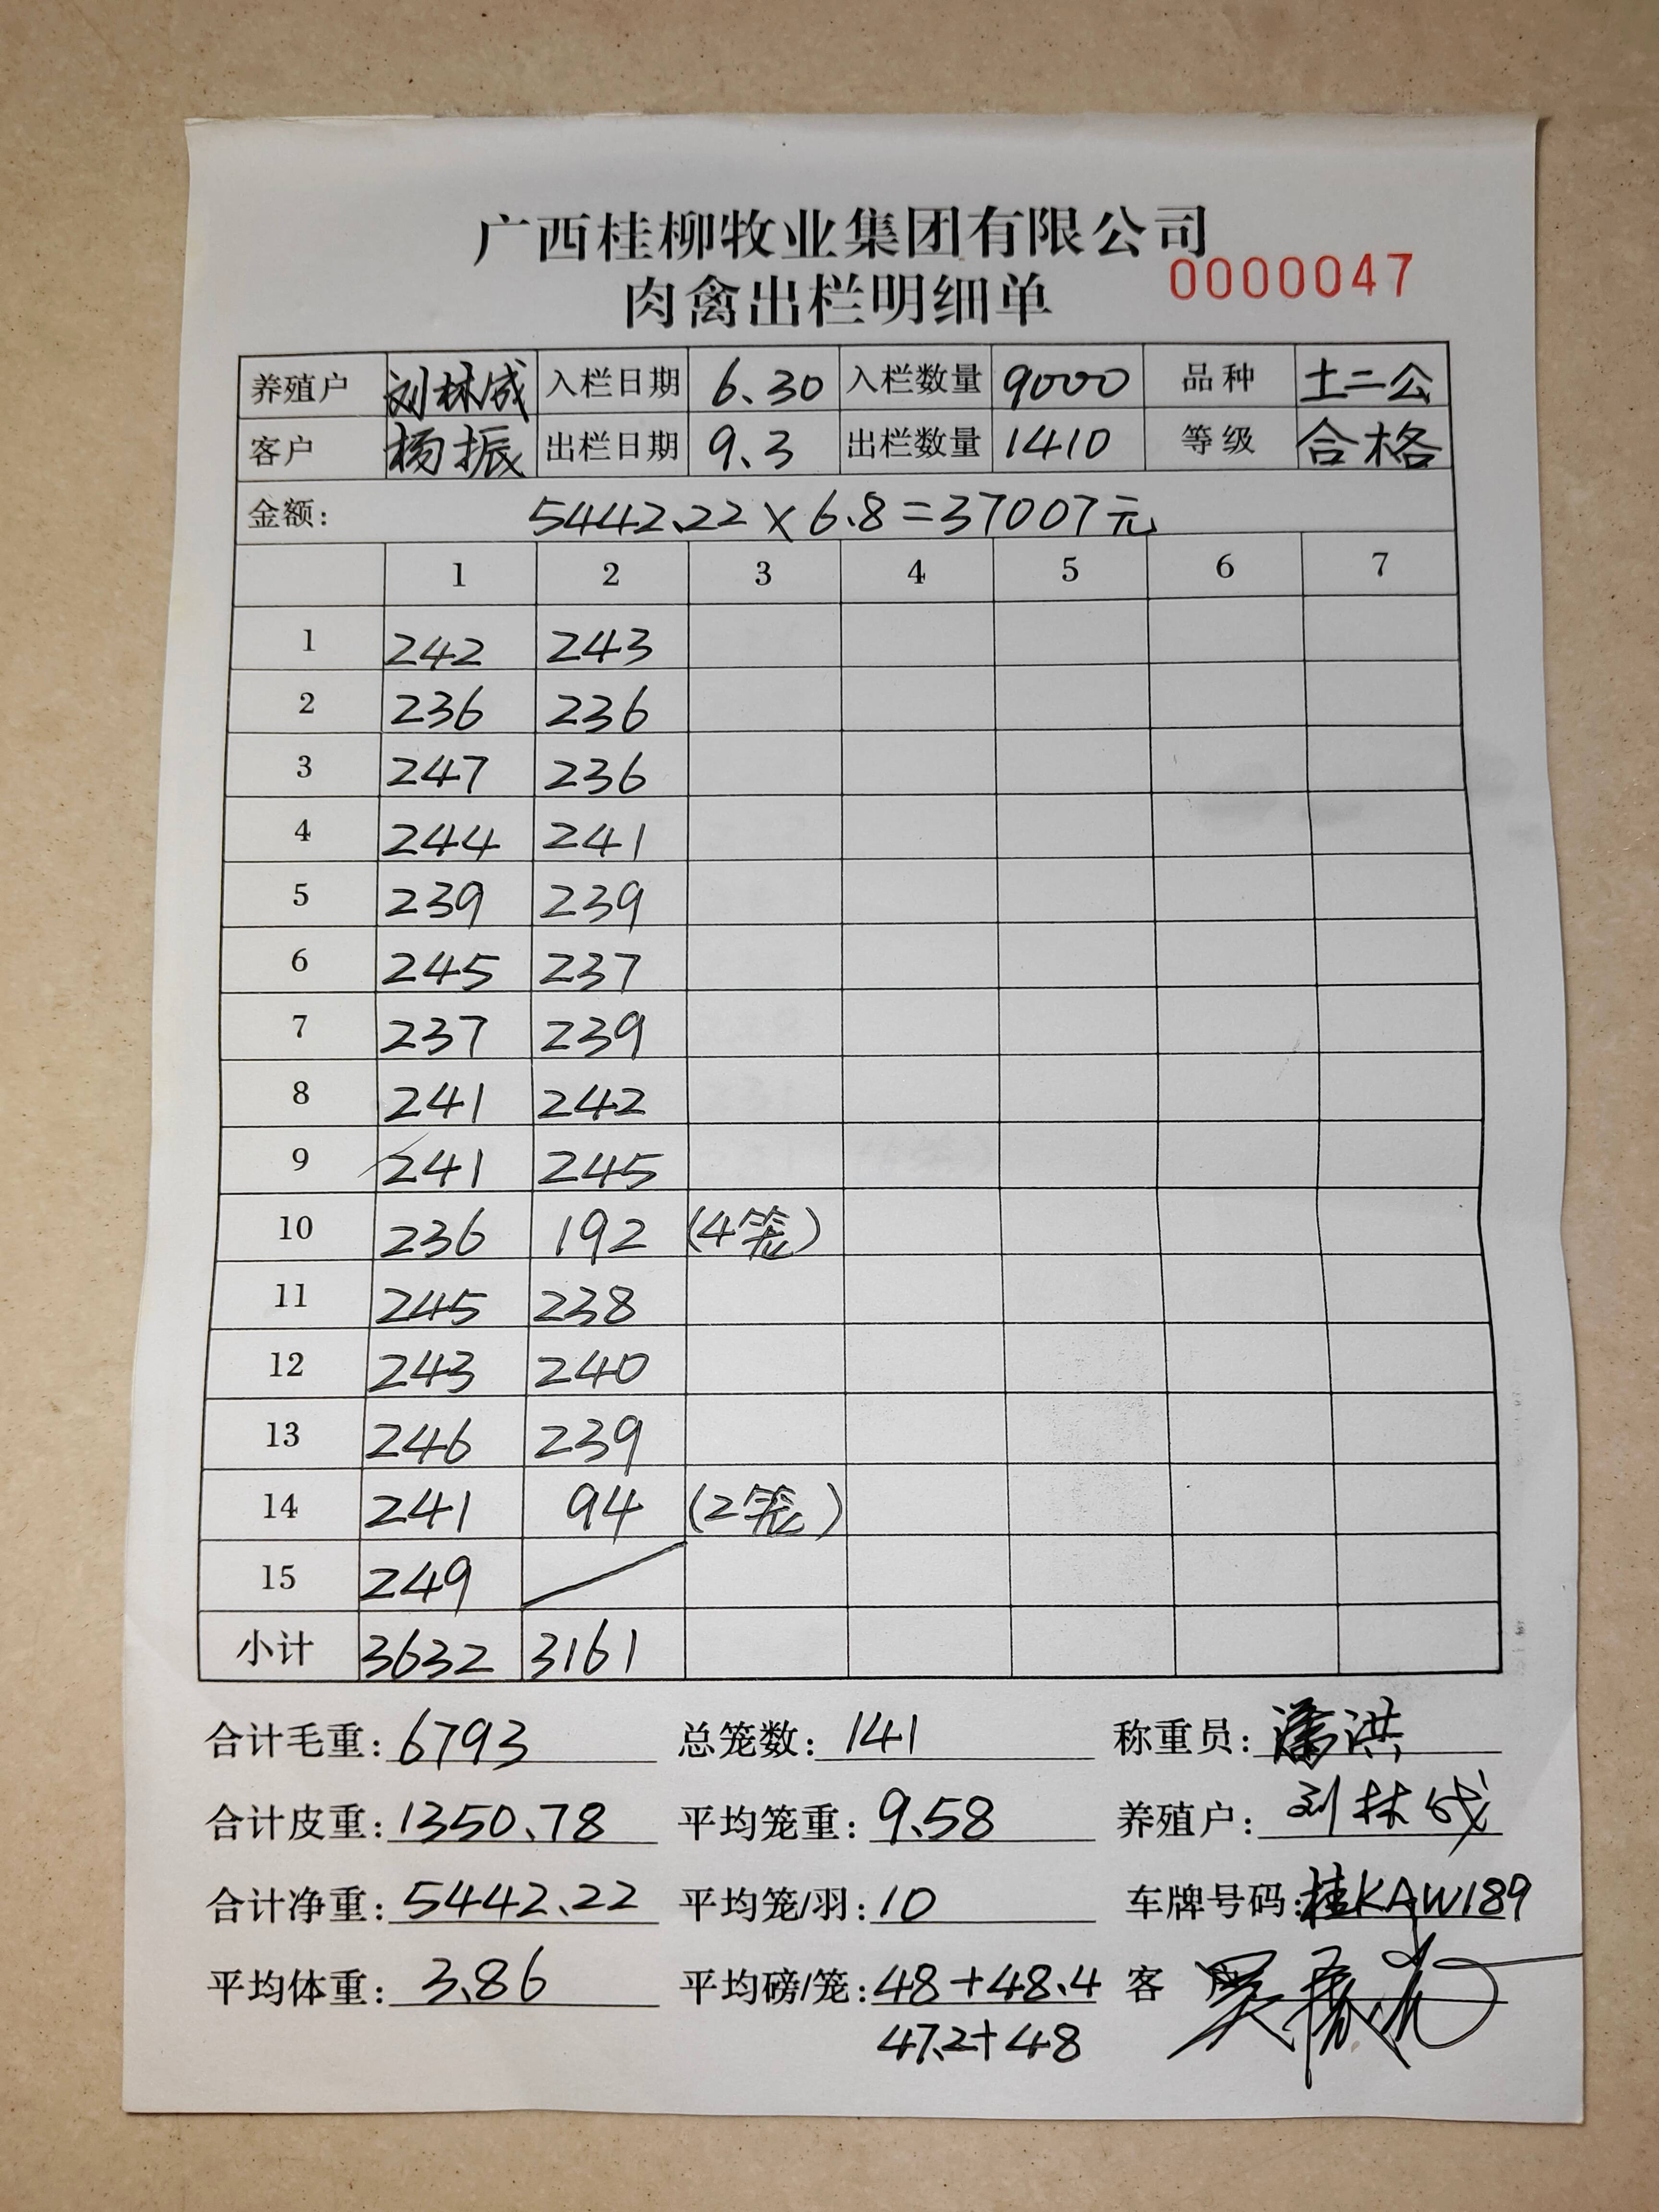 广西桂柳牧业集团有限公司
肉禽出栏明细单 0000047
养殖户 刘林成 入栏日期 6.30 入栏数量 9000 品种 土二公
客户 杨振 出栏日期 9.3 出栏数量 1410 等级 合格
金额: 5442.22×6.8=37007元
1 2 3 4 5 6 7
1 242 243
2 236 236
3 247 236
4 244 241
5 239 239
6 245 237
7 237 239
8 241 242
9 241 245
10 236 192 (4笼)
11 245 238
12 243 240
13 246 239
14 241 94 (2笼)
15 249
小计 3632 3161
合计毛重: 6793 总笼数: 141 称重员: 潘洪
合计皮重: 1350.78 平均笼重: 9.58 养殖户: 刘林成
合计净重: 5442.22 平均笼/羽: 10 车牌号码: 桂KAW189
平均体重: 3.86 平均磅/笼: 48+48.4 客户
47.2+48